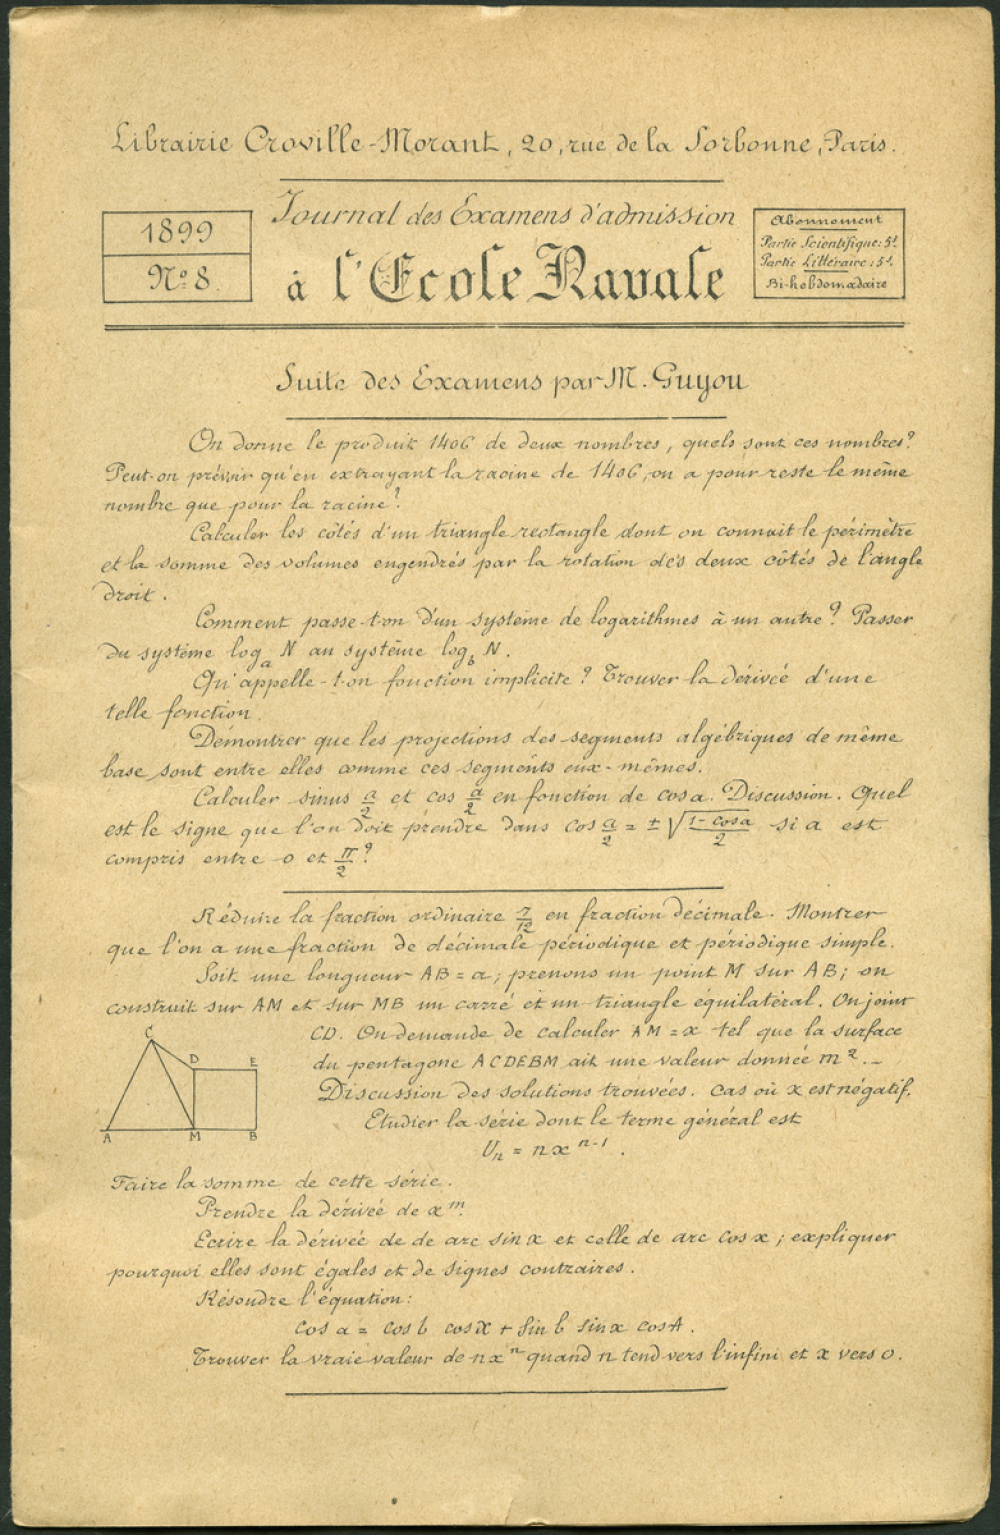 Librairie Croville-Morant, 20, rue de la Sorbonne, Paris.
1899
No. 8.
Journal des Examens d'admission
à l'Ecole Navale
Abonnement
Partie Scientifique: 5f
Partie Littéraire: 5f
Bi-hebdomadaire
Suite des Examens par M. Guyou
On donne le produit 1406 de deux nombres, quels sont ces nombres?
Peut-on prévoir qu'en extrayant la racine de 1406, on a pour reste le même
nombre que pour la racine?
Calculer les côtés d'un triangle rectangle dont on connait le périmètre
et la somme des volumes engendrés par la rotation des deux côtés de l'angle
droit.
Comment passe-t-on d'un système de logarithmes à un autre? Passer
du système log_a N au système log_b N.
Qu'appelle-t-on fonction implicite? Trouver la dérivée d'une
telle fonction.
Démontrer que les projections des segments algébriques de même
base sont entre elles comme ces segments eux-mêmes.
Calculer sinus a/2 et cos a/2 en fonction de cos a. Discussion. Quel
est le signe que l'on doit prendre dans cos a/2 = ± √(1 - cos a / 2) si a est
compris entre 0 et π/2?
Réduire la fraction ordinaire 7/12 en fraction décimale. Montrer
que l'on a une fraction de décimale périodique et périodique simple.
Soit une longueur AB = a; prenons un point M sur AB; on
construit sur AM et sur MB un carré et un triangle équilatéral. On joint
CD. On demande de calculer AM = x tel que la surface
du pentagone ACDEBM ait une valeur donnée m².—
Discussion des solutions trouvées. Cas où x est négatif.
C
D
E
A
M
B
Etudier la série dont le terme général est
Uₙ = n xⁿ⁻¹.
Faire la somme de cette série.
Prendre la dérivée de xᵐ.
Ecrire la dérivée de de arc sin x et celle de arc cos x; expliquer
pourquoi elles sont égales et de signes contraires.
Résoudre l'équation:
cos a = cos b cos x + sin b sin x cos A.
Trouver la vraie valeur de n xⁿ quand n tend vers l'infini et x vers 0.